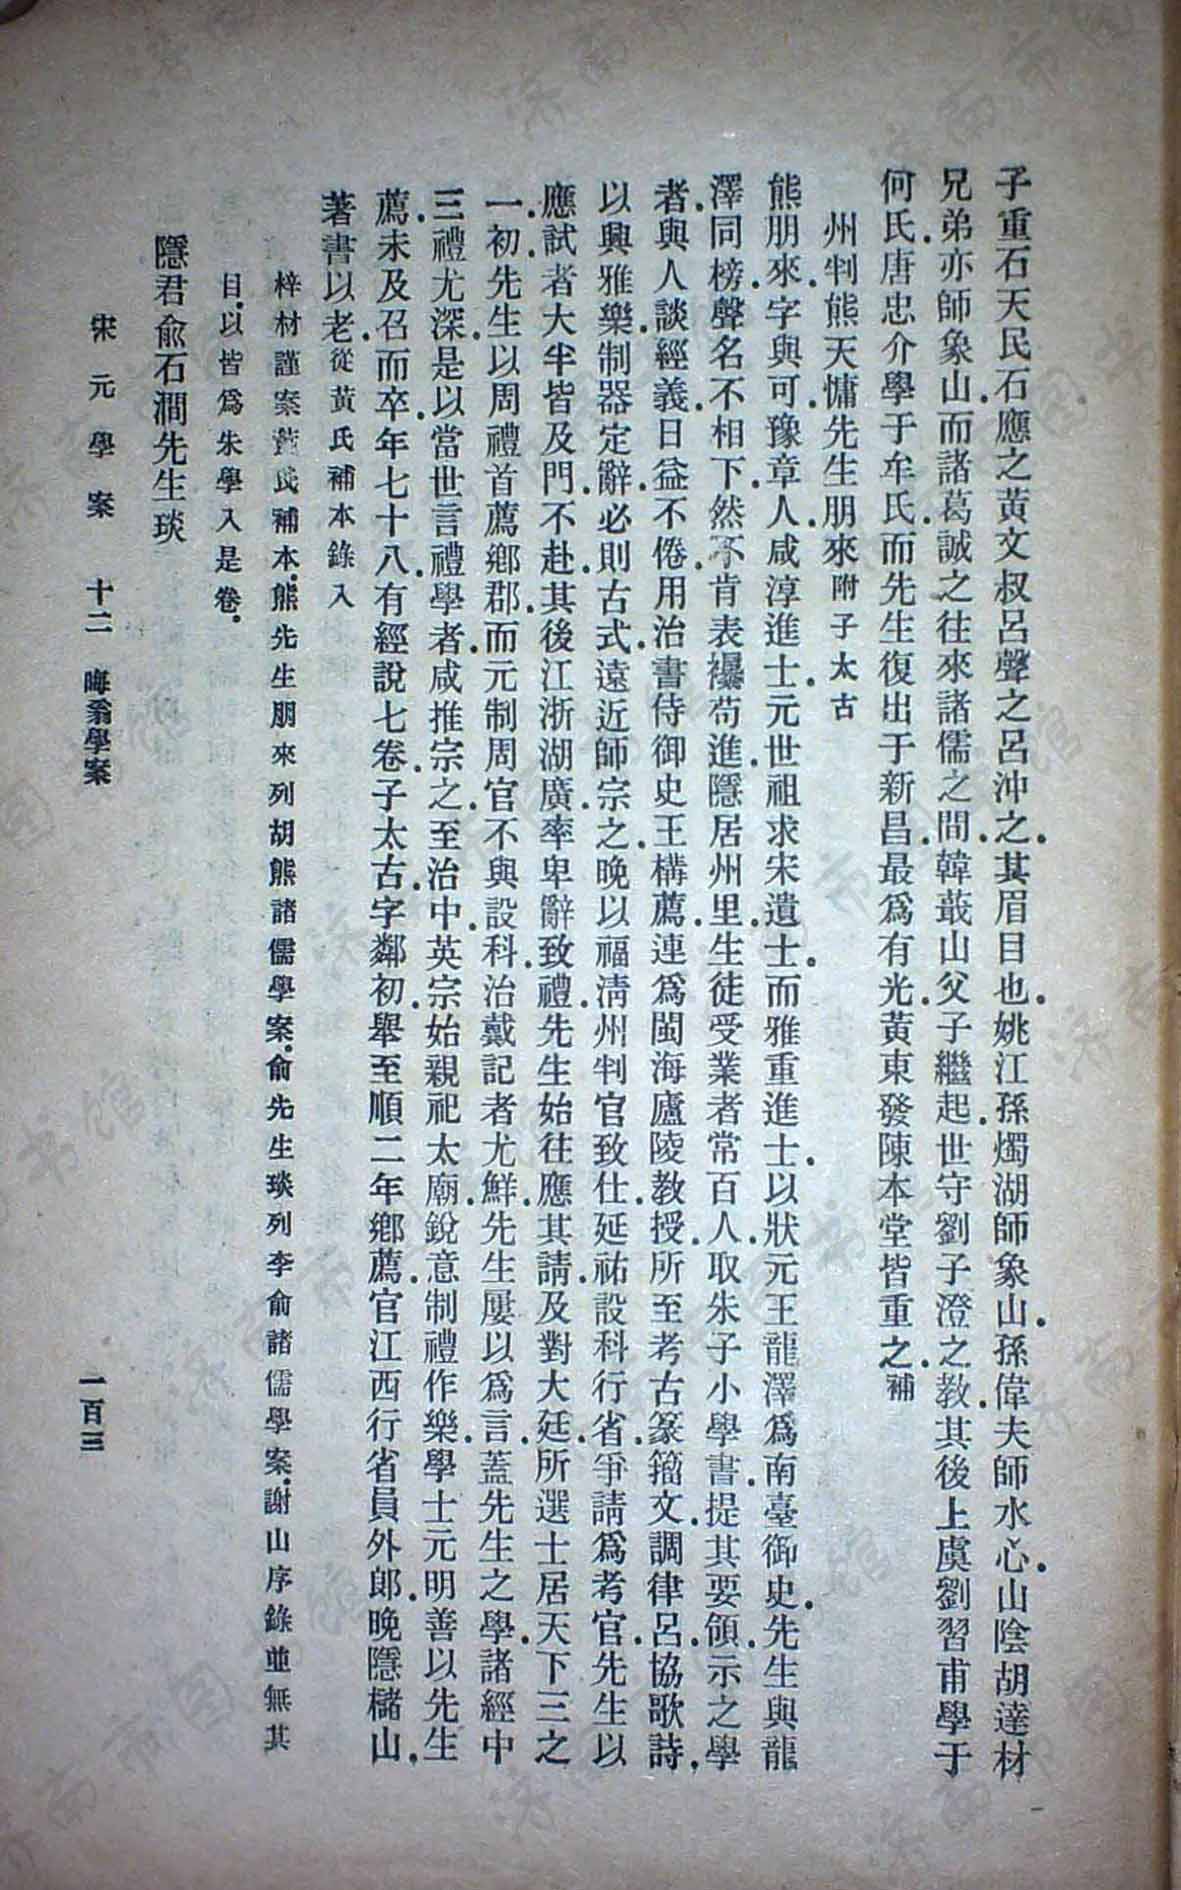 子重石天民石應之黃文叔呂聲之呂沖之其眉目也姚江孫燭湖師象山孫偉夫師水心山陰胡達材
兄弟亦師象山而諸葛誠之往來諸儒之間韓蕺山父子繼起世守劉子澄之教其後上虞劉習甫學于
何氏唐忠介學于牟氏而先生復出于新昌最爲有光黃東發陳本堂皆重之補
州判熊天慵先生朋來附子太古
熊朋來字與可豫章人咸淳進士元世祖求宋遺士而雅重進士以狀元王龍澤爲南臺御史先生與龍
澤同榜聲名不相下然不肯表襮苟進隱居州里生徒受業者常百人取朱子小學書提其要領示之學
者與人談經義日益不倦用治書侍御史王構薦連爲閩海廬陵教授所至考古篆籀文調律呂協歌詩
以興雅樂制器定辭必則古式遠近師宗之晚以福清州判官致仕延祐設科行省爭請爲考官先生以
應試者大半皆及門不赴其後江浙湖廣率卑辭致禮先生始往應其請及對大廷所選士居天下三之
一初先生以周禮首薦鄉郡而元制周官不與設科治戴記者尤鮮先生屢以爲言蓋先生之學諸經中
三禮尤深是以當世言禮學者咸推宗之至治中英宗始親祀太廟銳意制禮作樂學士元明善以先生
薦未及召而卒年七十八有經說七卷子太古字鄰初舉至順二年鄉薦官江西行省員外郎晚隱櫧山
著書以老從黃氏補本錄入
梓材謹案黃氏補本熊先生朋來列胡熊諸儒學案俞先生琰列李俞諸儒學案謝山序錄並無其
目以皆爲朱學入是卷。
隱君俞石澗先生琰
宋元學案 十二 晦翁學案 一百三